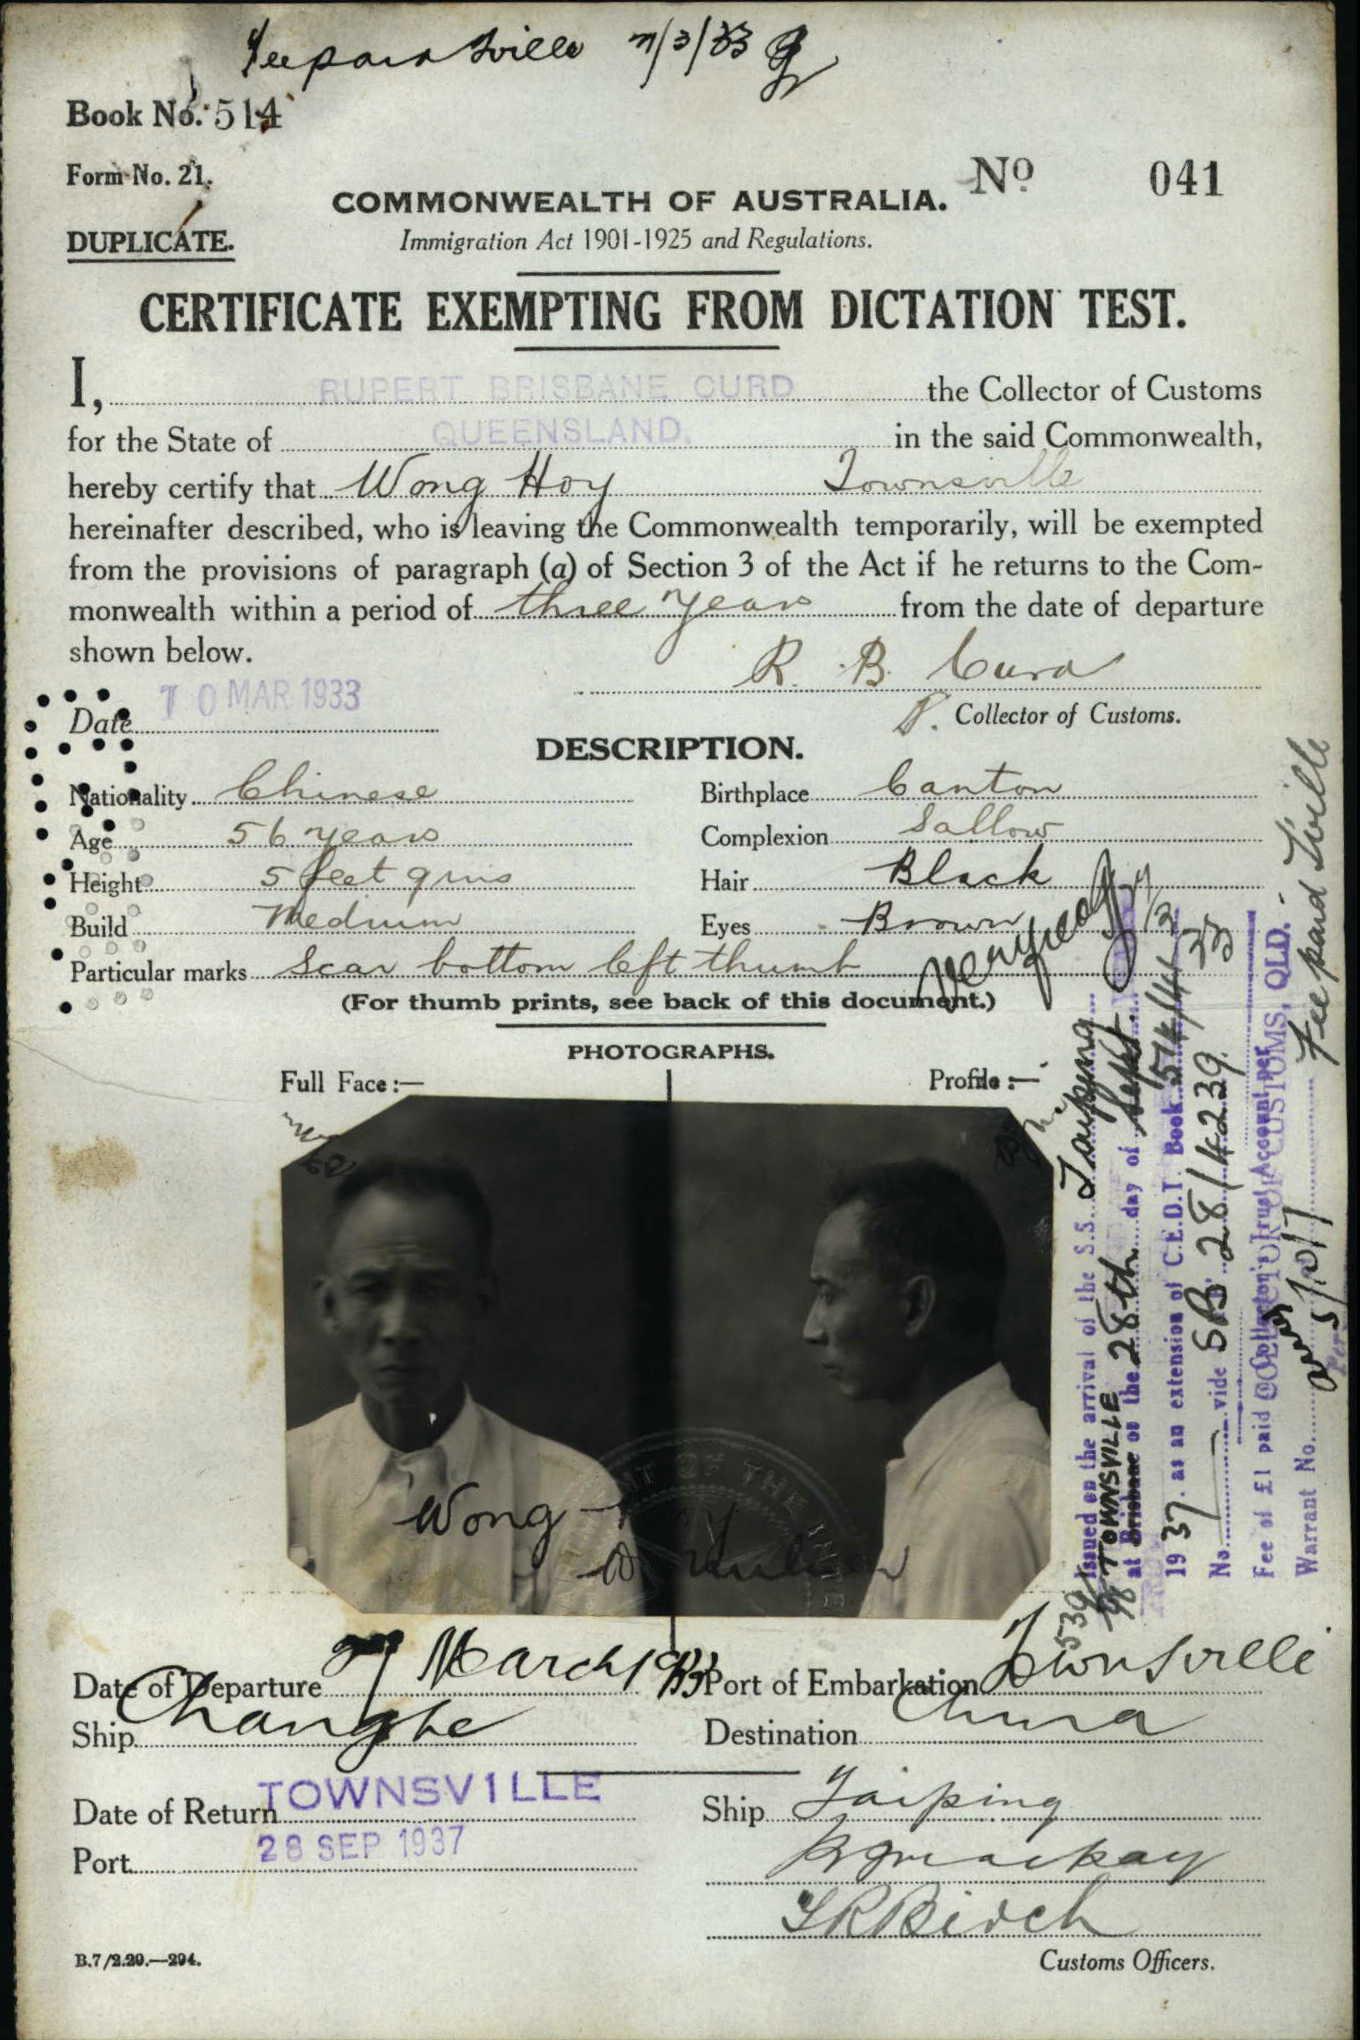 Fee paid Tville 7/3/33
Book No. 514
Form No. 21.
No 041
COMMONWEALTH OF AUSTRALIA.
DUPLICATE.
Immigration Act 1901-1925 and Regulations.
CERTIFICATE EXEMPTING FROM DICTATION TEST.
I, RUPERT BRISBANE CURD the Collector of Customs
for the State of QUEENSLAND. in the said Commonwealth,
hereby certify that Wong Hoy Townsville
hereinafter described, who is leaving the Commonwealth temporarily, will be exempted
from the provisions of paragraph (a) of Section 3 of the Act if he returns to the Com-
monwealth within a period of three years from the date of departure
shown below.
R. B. Curd
Date 10 MAR 1933
Collector of Customs.
DESCRIPTION.
Nationality Chinese Birthplace Canton
Age 56 years Complexion Sallow
Height 5 feet 9 ins Hair Black
Build Medium Eyes Brown
Particular marks Scar bottom left thumb
(For thumb prints, see back of this document.)
PHOTOGRAPHS.
Full Face:— Profile:—
Wong Hoy
Date of Departure 7 March 1933 Port of Embarkation Townsville
Ship Changte Destination China
Date of Return TOWNSVILLE Ship Taiping
Port 28 SEP 1937
Customs Officers.
B.7/2.29.—294.
Issued on the arrival of the S.S. Taiping
at Brisbane TOWNSVILLE on the 28th day of Sept.
1937. as an extension of C.E.D.T. Book 514/41
No. vide SB 28/4239.
Fee of £1 paid Collector's Trust Account per
Warrant No.
COLLECTOR OF CUSTOMS, QLD.
Fee paid Tville